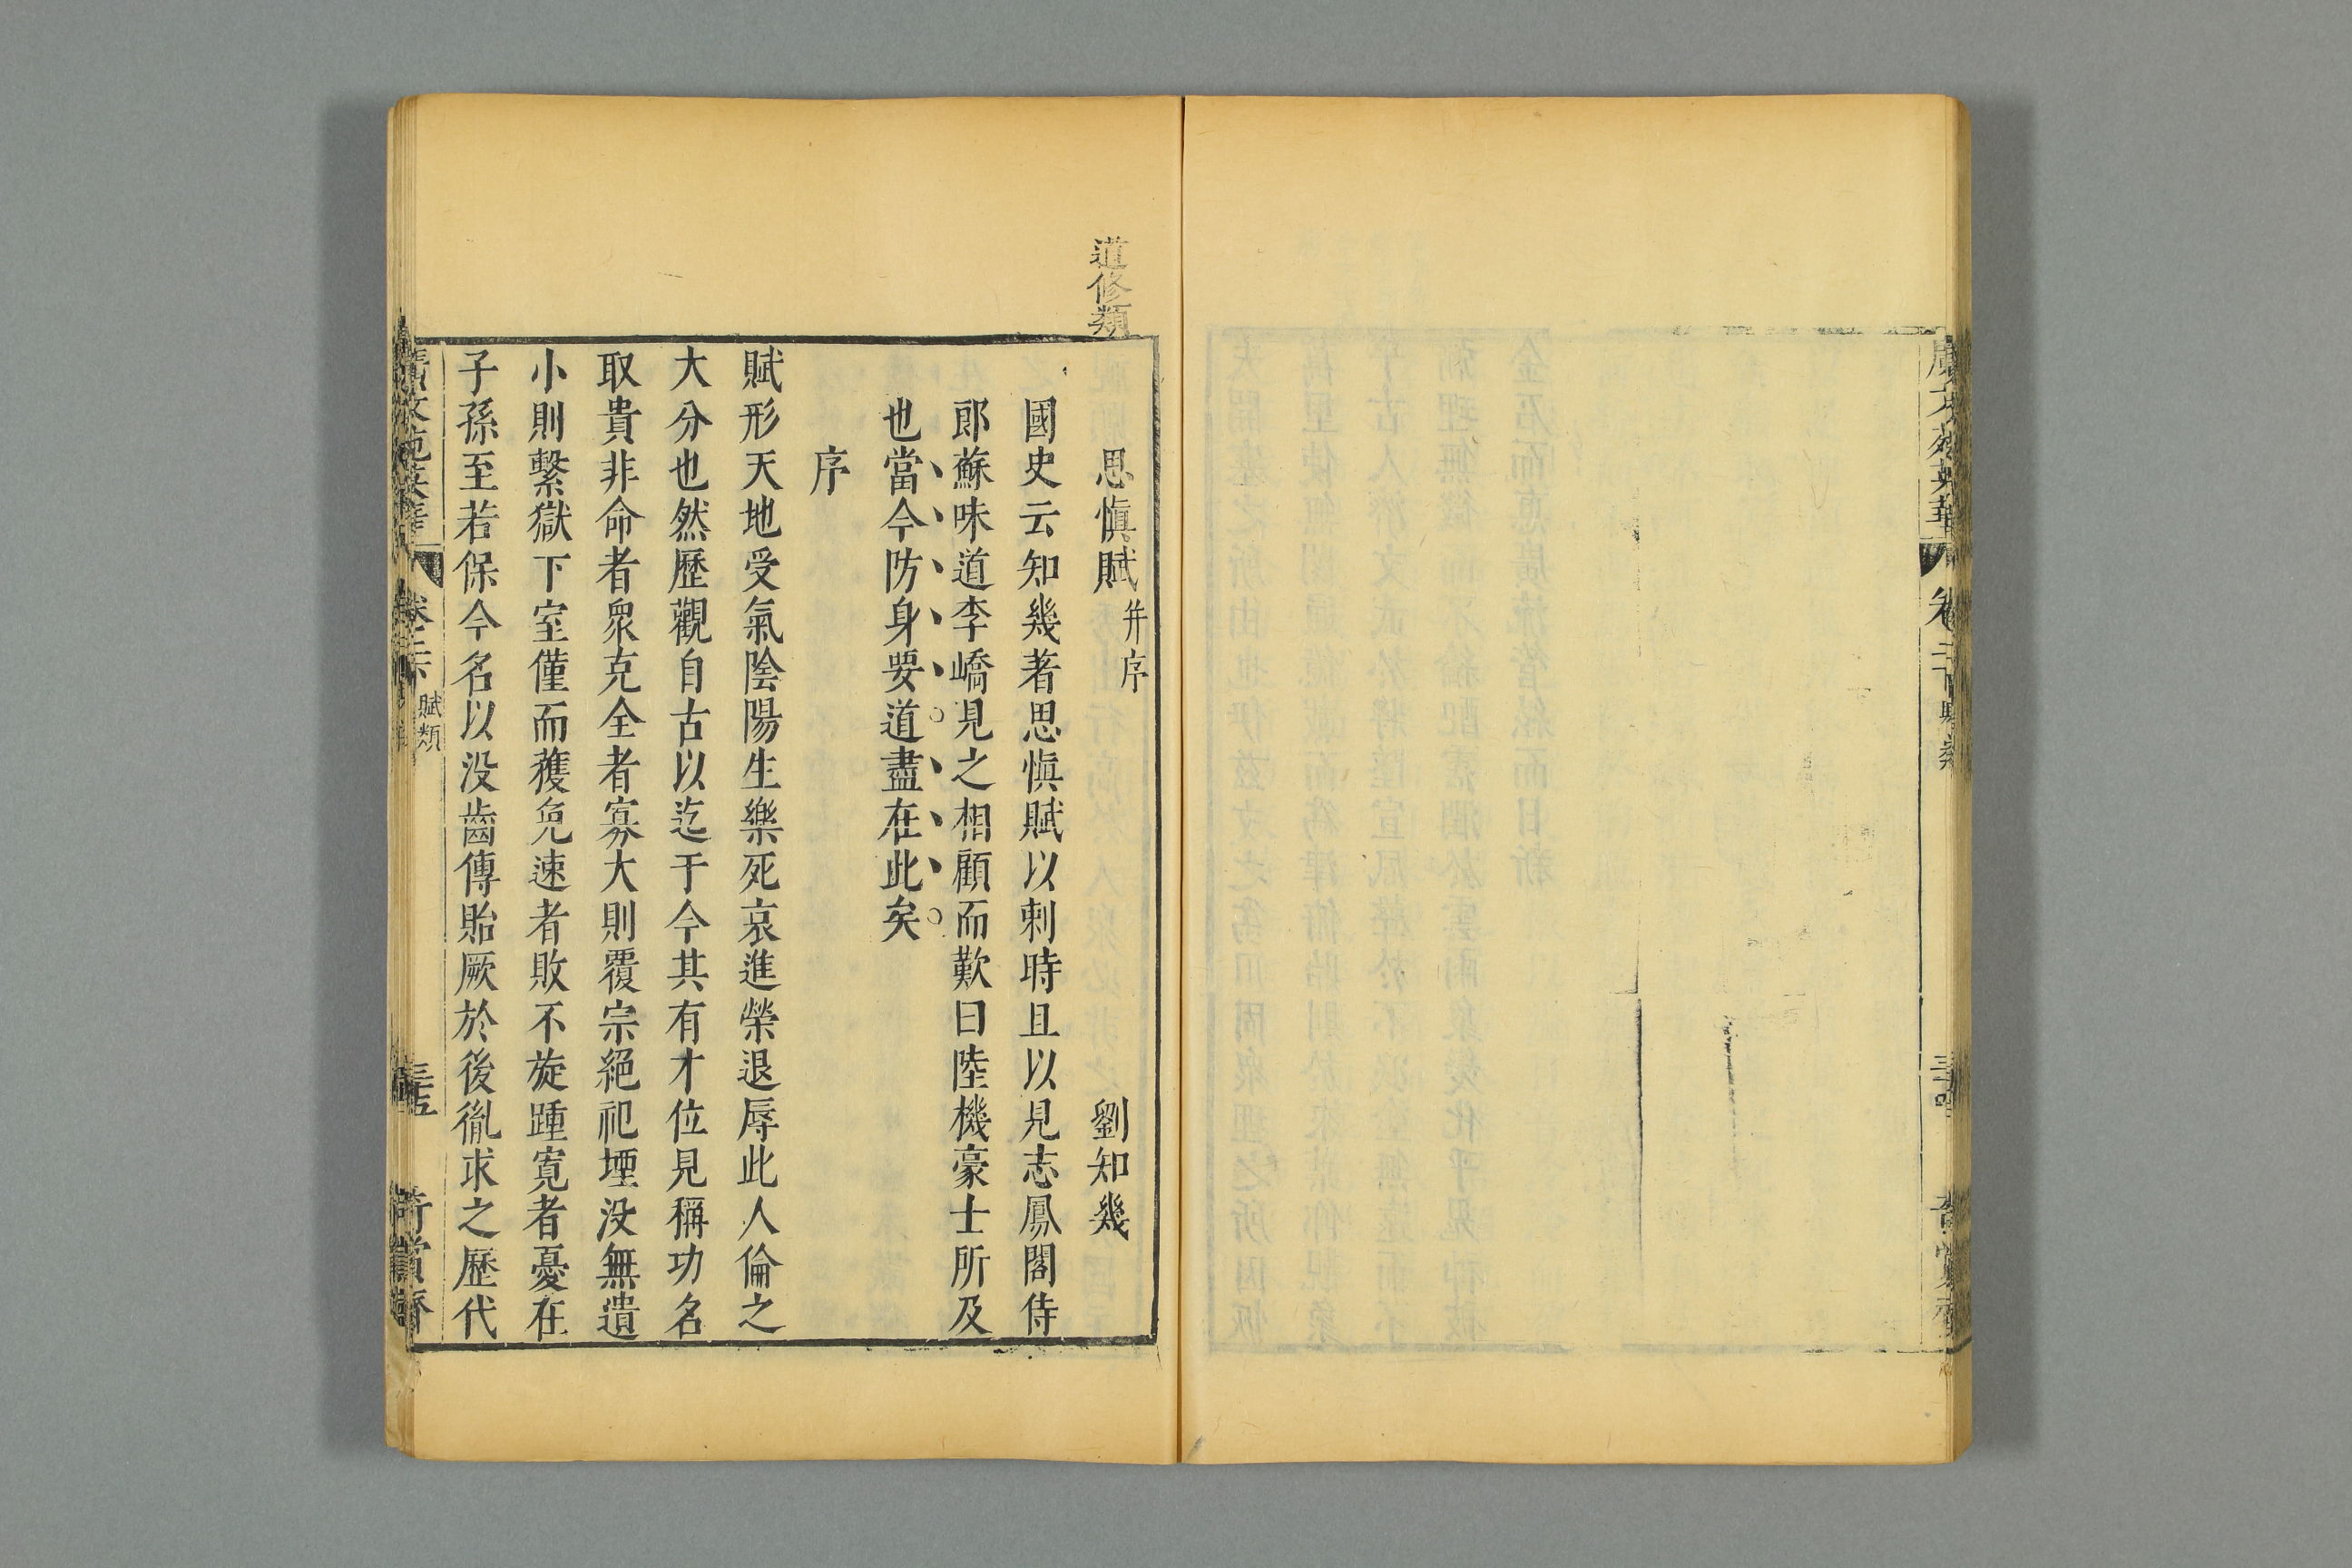 道修類
思愼賦 并序 劉知幾
國史云知幾著思愼賦以刺時且以見志鳳閣侍
郎蘇味道李嶠見之相顧而歎曰陸機豪士所及
也當今防身要道盡在此矣
序
賦形天地受氣陰陽生樂死哀進榮退辱此人倫之
大分也然歷觀自古以迄于今其有才位見稱功名
取貴非命者衆克全者寡大則覆宗絕祀堙没無遺
小則繫獄下室僅而獲免速者敗不旋踵寬者憂在
子孫至若保令名以没齒傳貽厥於後胤求之歷代
賦類
三十五